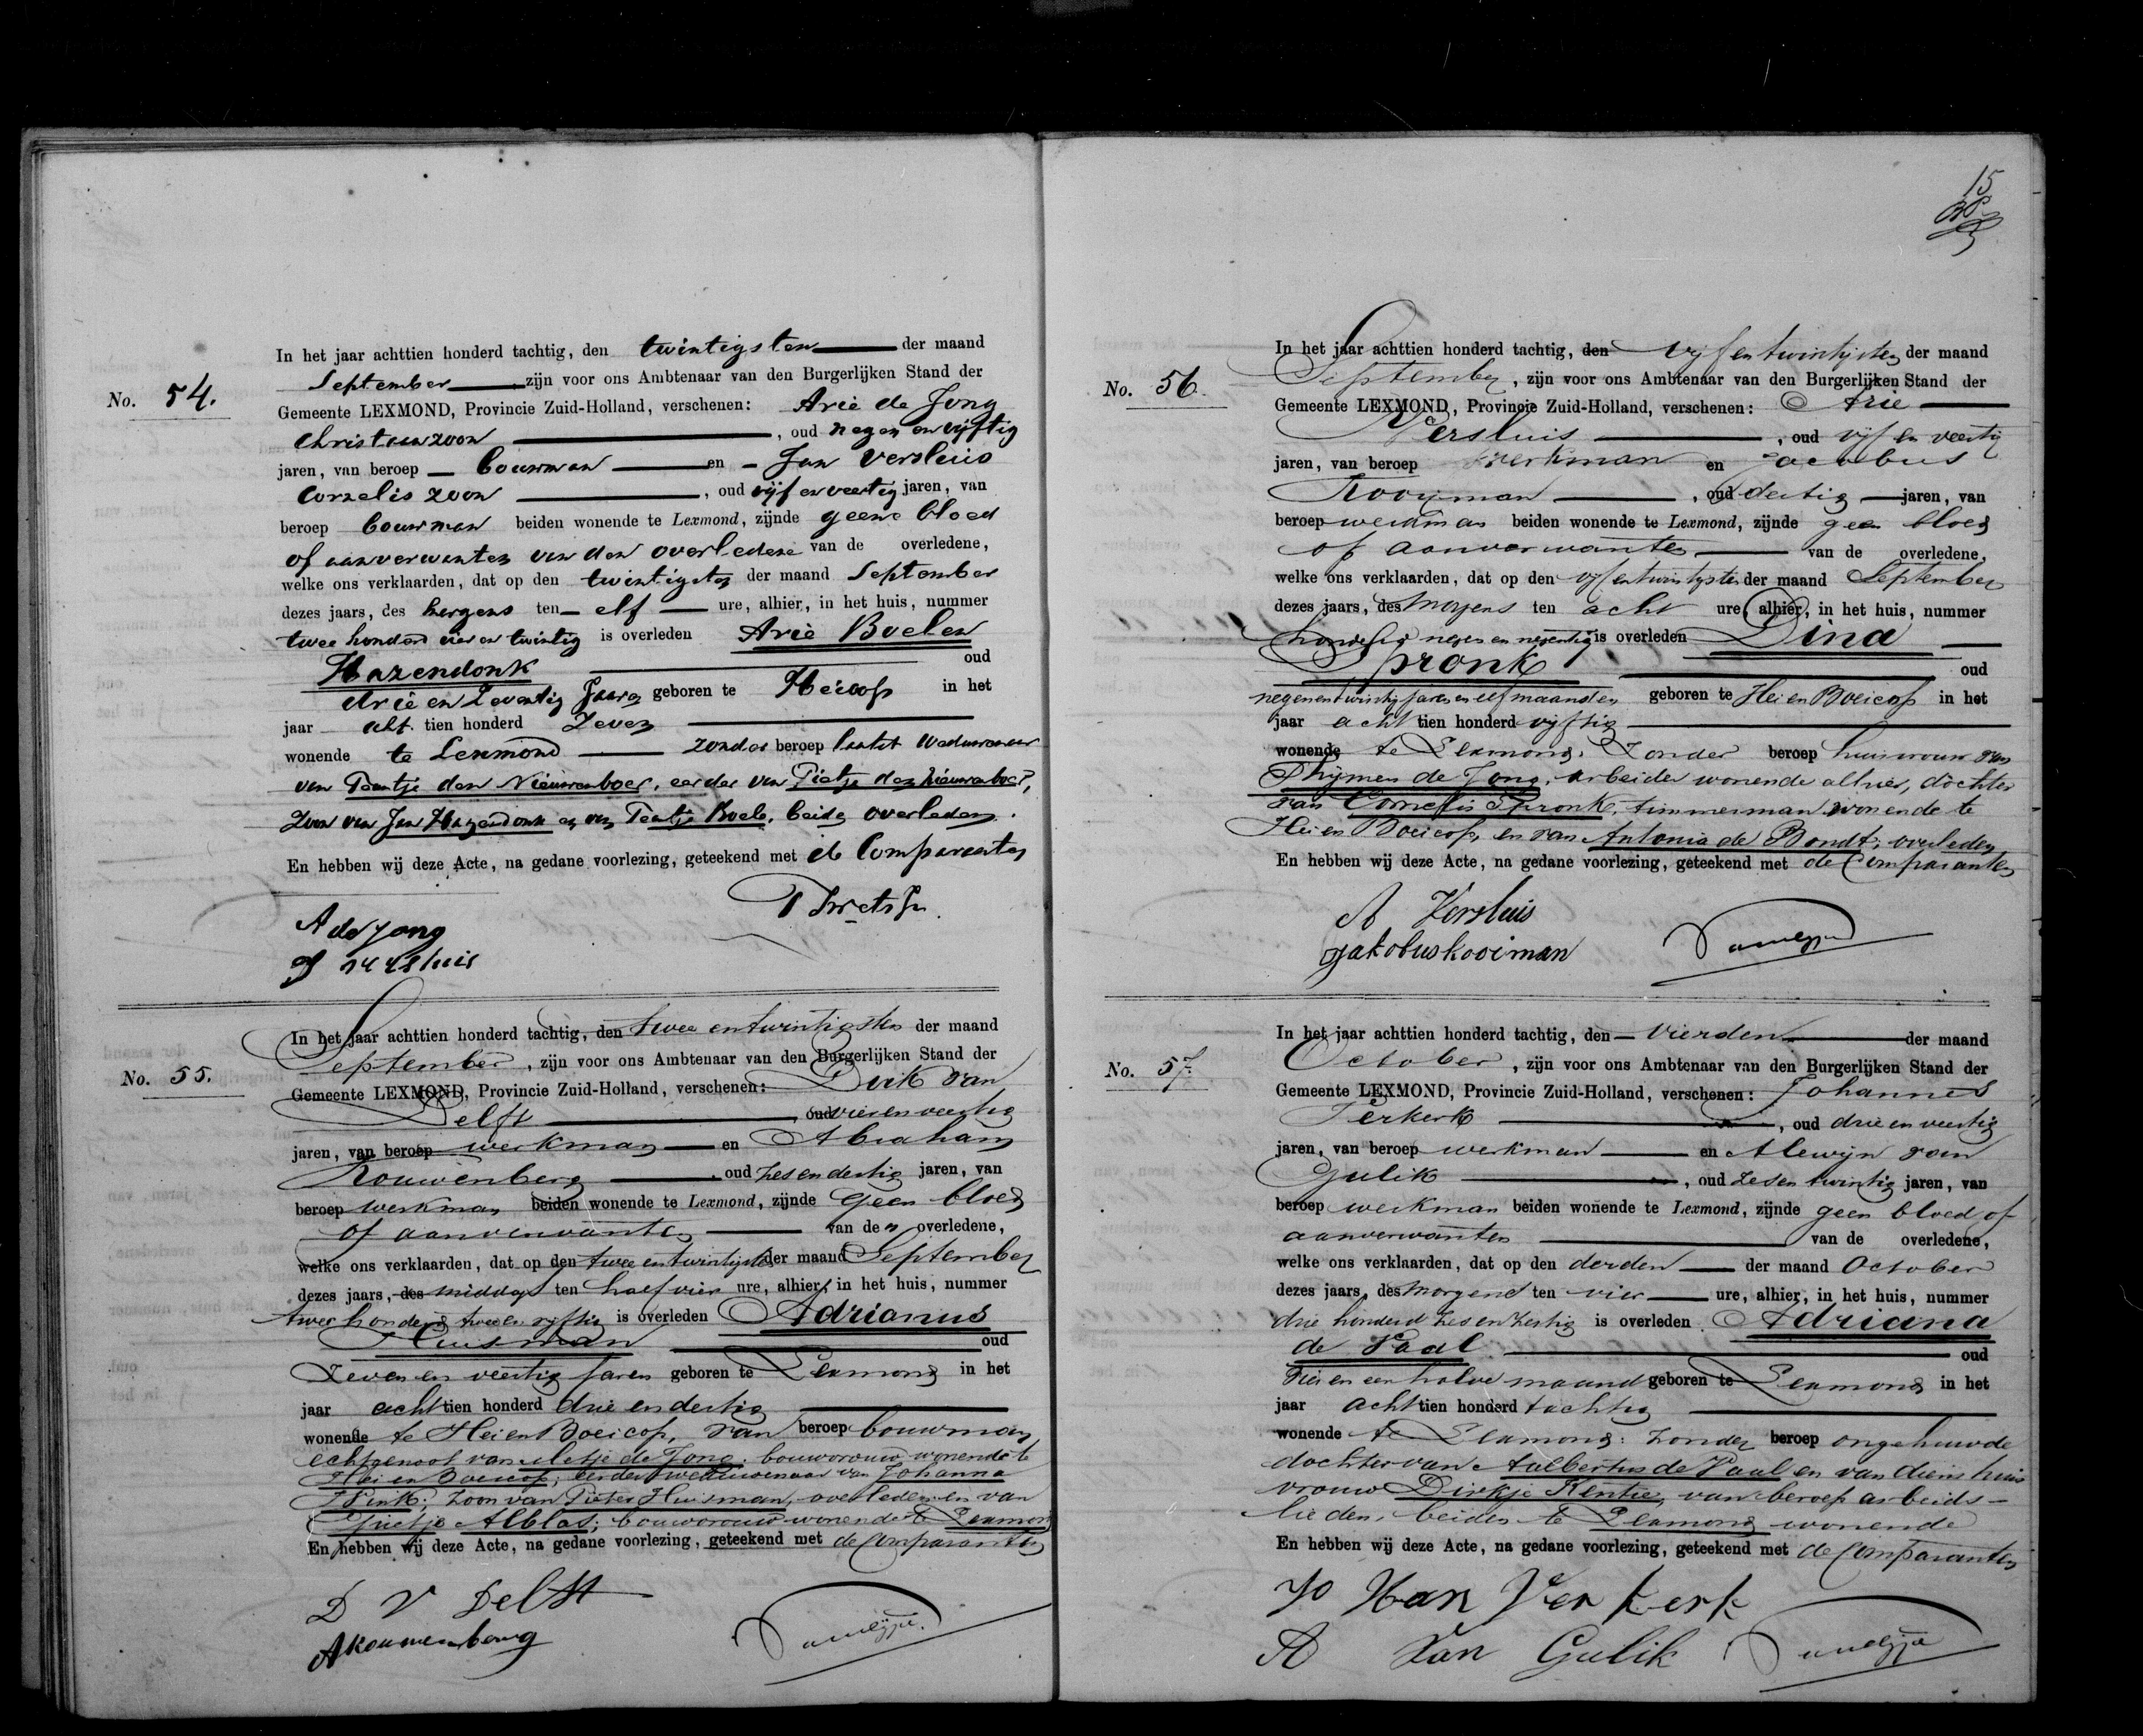 No. 54.
In het jaar achttien honderd tachtig, den twintigsten der maand
September zijn voor ons Ambtenaar van den Burgerlijken Stand der
Gemeente LEXMOND, Provincie Zuid-Holland, verschenen: Arie de Jong
Christaanzoon, oud negen en vijftig
jaren, van beroep bouwman en Jan Versluis
Corzelis zoon, oud vijf en veertig jaren, van
beroep bouwman beiden wonende te Lexmond, zijnde geene bloed
of aanverwanten van den overledene van de overledene,
welke ons verklaarden, dat op den twintigsten der maand September
dezes jaars, des morgens ten elf ure, alhier, in het huis, nummer
twee honderd vier en twintig is overleden Arie Boelen
Hazendonk oud
drie en Zeventig Jaaren geboren te Heicop in het
jaar acht tien honderd Zeven
wonende te Lexmond zonder beroep laatst Weduwenaar
van Teuntje den Nieuwenboer, eerder van Pietje den Nieuwenboer,
Zoon van Jan Hazendonk en van Teuntje Boele, beide overleden.
En hebben wij deze Acte, na gedane voorlezing, geteekend met de Comparanten
A de Jong
J versluis
No. 55.
In het jaar achttien honderd tachtig, den twee en twintigsten der maand
September, zijn voor ons Ambtenaar van den Burgerlijken Stand der
Gemeente LEXMOND, Provincie Zuid-Holland, verschenen: Dirk van
Delft oud vier en veertig
jaren, van beroep werkman en Abraham
Kouwenberg, oud zes en dertig jaren, van
beroep werkman beiden wonende te Lexmond, zijnde geen bloed
of aanverwanten van den overledene,
welke ons verklaarden, dat op den twee en twintigsten der maand September
dezes jaars, des middags ten half vier ure, alhier, in het huis, nummer
twee honderd twee en vijftig is overleden Adrianus
Huisman oud
Zeven en veertig jaren geboren te Lexmond in het
jaar acht tien honderd drie en dertig
wonende te Hei en Boeicop, van beroep bouwman,
echtgenoot van Metje de Jong, bouwvrouw wonende te
Hei en Boeicop; eerder weduwenaar van Johanna
Pink; zoon van Pieter Huisman, overleden en van
Grietje Alblas; bouwvrouw wonende te Lexmond
En hebben wij deze Acte, na gedane voorlezing, geteekend met de Comparanten
D V Delft
A kouwenberg
15
No. 56.
In het jaar achttien honderd tachtig, den vijf en twintigsten der maand
September, zijn voor ons Ambtenaar van den Burgerlijken Stand der
Gemeente LEXMOND, Provincie Zuid-Holland, verschenen: Arie
Versluis, oud vijf en veertig
jaren, van beroep werkman en Jacobus
Kooijman, oud dertig jaren, van
beroep werkman beiden wonende te Lexmond, zijnde geen bloed
of aanverwanten van de overledene,
welke ons verklaarden, dat op den vijf en twintigsten der maand September
dezes jaars, des Morgens ten acht ure, alhier, in het huis, nummer
honderd negen en negentig is overleden Dina
Spronk oud
negenentwintig jaren en elf maanden geboren te Hei en Boeicop in het
jaar acht tien honderd vijftig
wonende te Lexmond, Zonder beroep huisvrouw van
Thijmen de Jong, arbeider wonende alhier, dochter
van Cornelis Spronk, timmerman wonende te
Hei en Boeicop, en van Antonia de Bondt; overleden
En hebben wij deze Acte, na gedane voorlezing, geteekend met de Comparanten
A Versluis
Jakobus kooiman
No. 57.
In het jaar achttien honderd tachtig, den Vierden der maand
October, zijn voor ons Ambtenaar van den Burgerlijken Stand der
Gemeente LEXMOND, Provincie Zuid-Holland, verschenen: Johannes
Verkerk, oud drie en veertig
jaren, van beroep werkman en Alewijn van
Gulik, oud zes en twintig jaren, van
beroep werkman beiden wonende te Lexmond, zijnde geen bloed of
aanverwanten van de overledene,
welke ons verklaarden, dat op den derden der maand October
dezes jaars, des Morgens ten vier ure, alhier, in het huis, nummer
drie honderd zes en zestig is overleden Adriana
de Paal oud
vier en een halve maand geboren te Lexmond in het
jaar acht tien honderd tachtig
wonende te Lexmond: zonder beroep ongehuwde
dochter van Aalbertus de Paal en van diens huis
vrouw Dirkje Kentie, van beroep arbeids-
lieden, beiden te Lexmond wonende
En hebben wij deze Acte, na gedane voorlezing, geteekend met de Comparanten
Jo Han Ver kerk
A Van Gulik